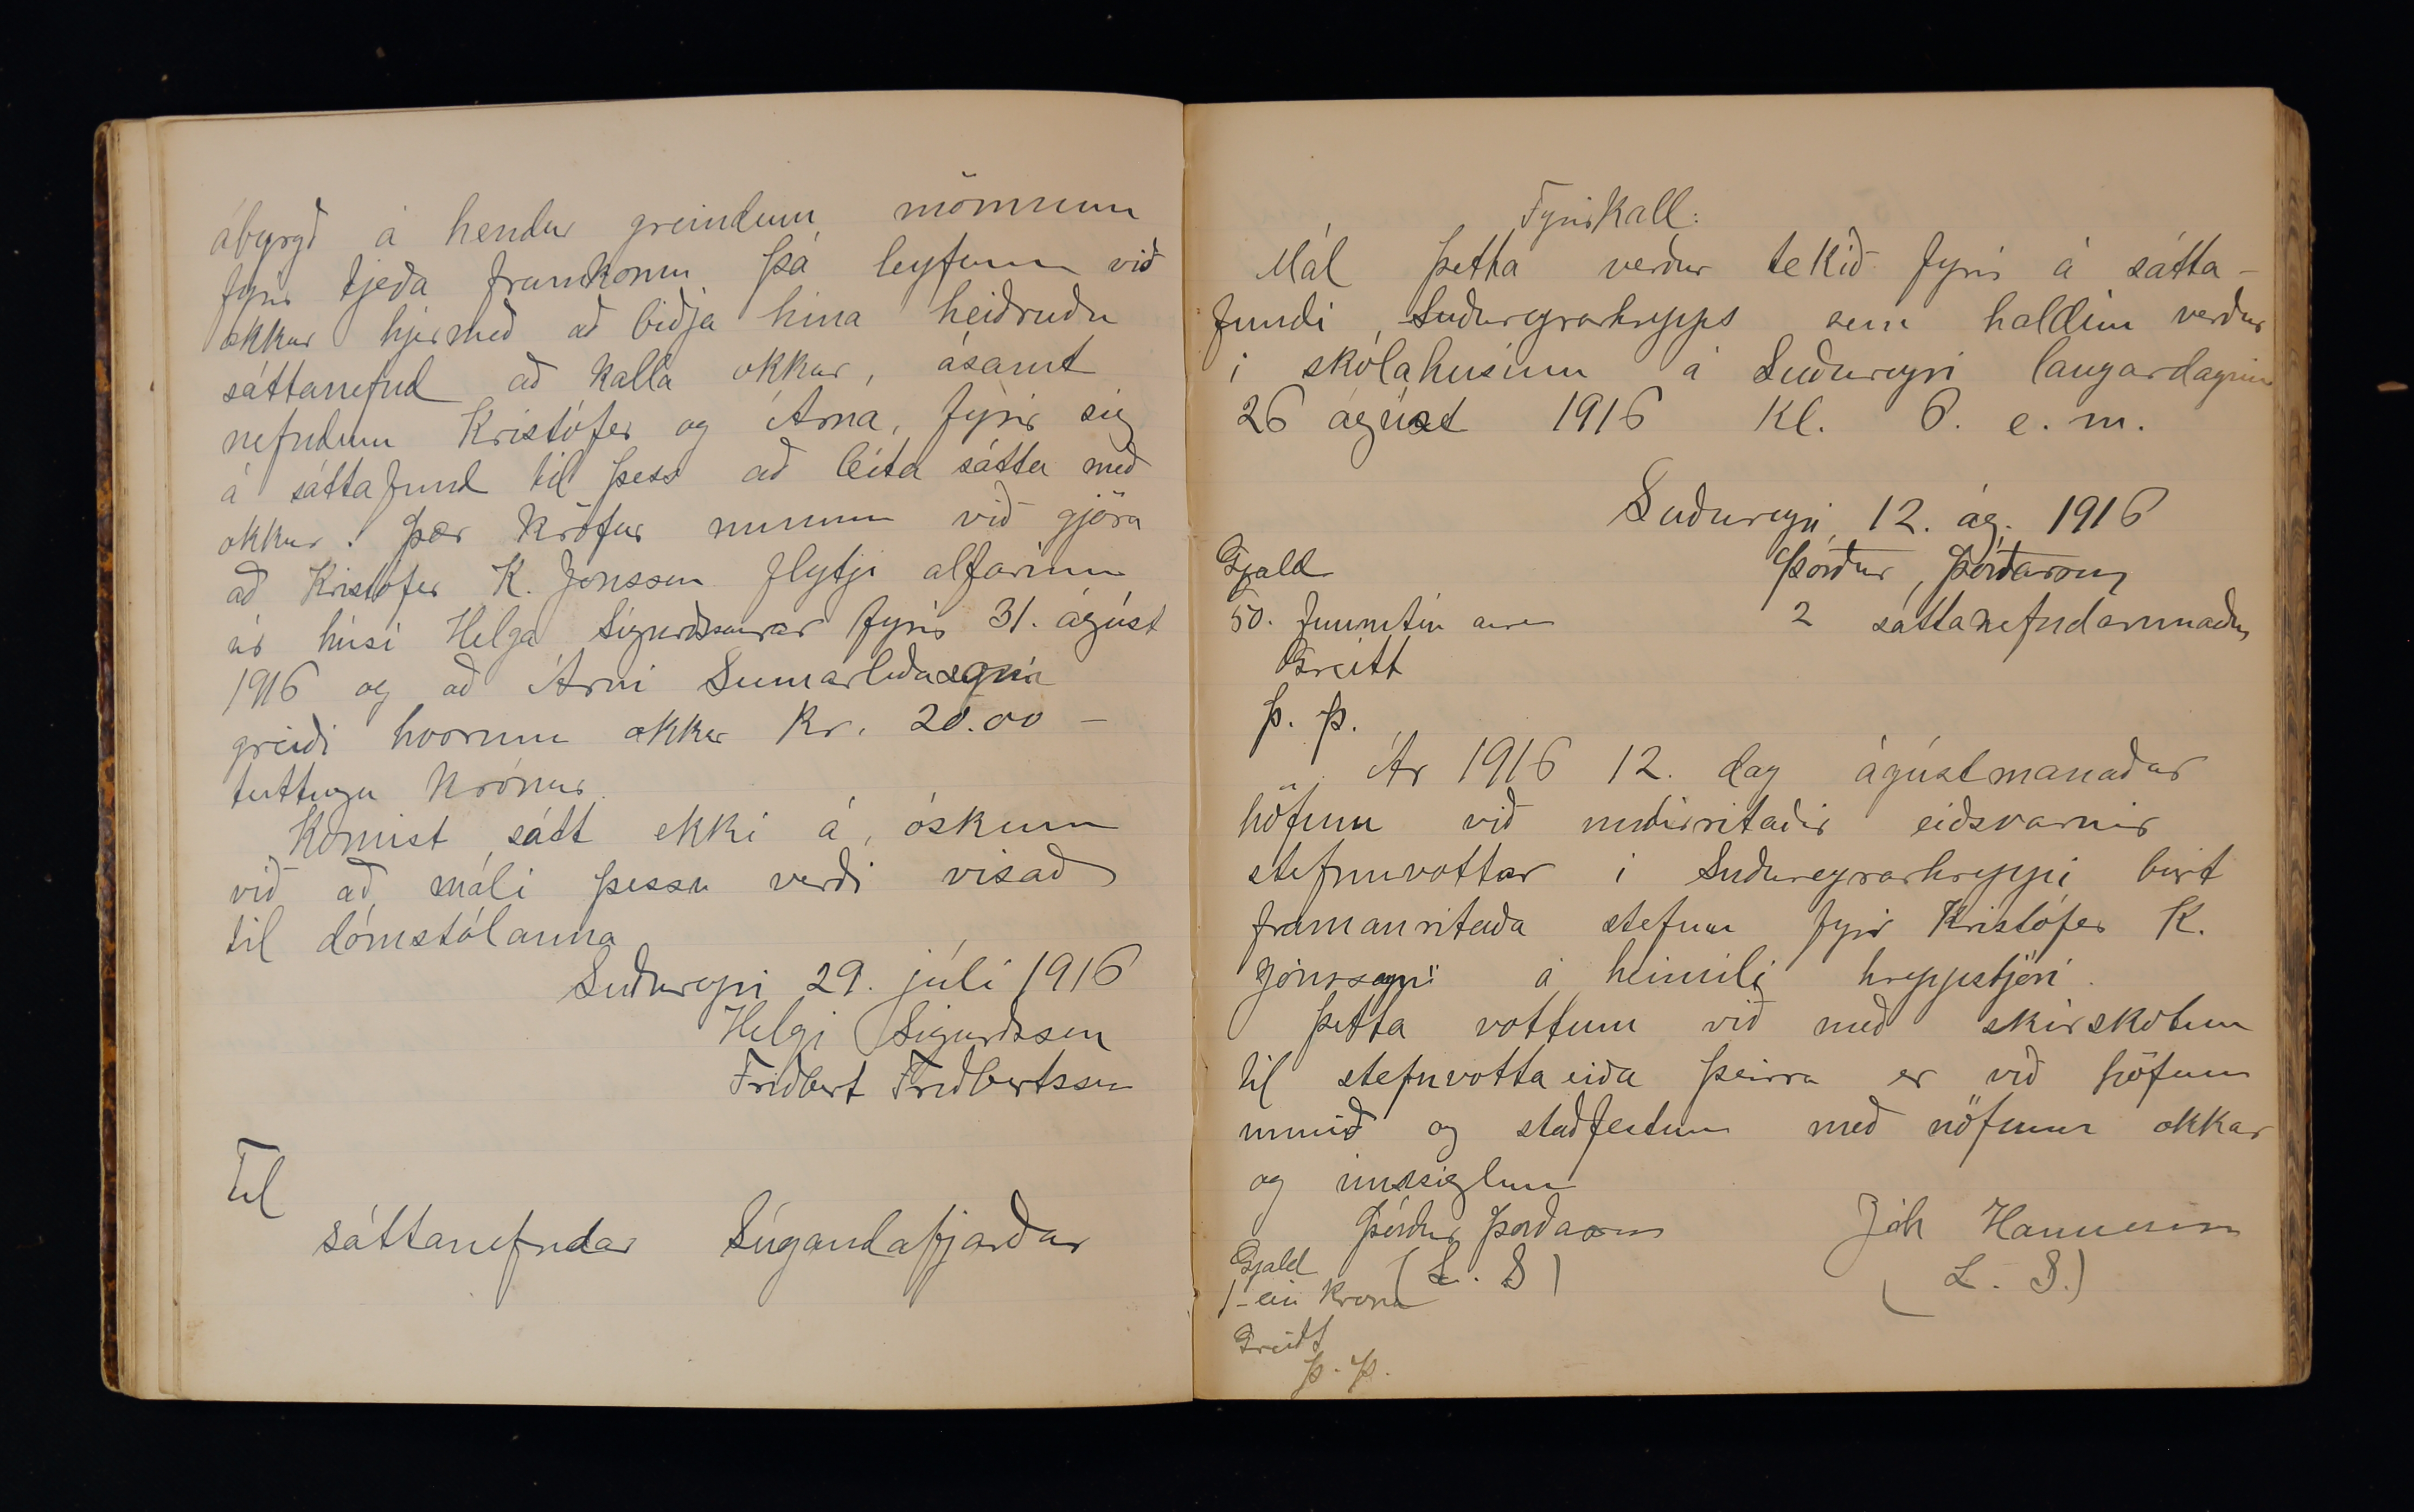 ábyrgð á hendur greindum mönnum
fyrir tjeða framkomu þá leyfum við
okkur hjermeð að biðja hina heiðruðu
sáttanefnd að kalla okkur, ásamt
nefndum Kristófer og Árna, fyrir sig
á sáttafund til þess að leita sátta með
okkur. Þær kröfur munum við gjöra
að Kristófer K. Jónsson flytji alfarinn
úr húsi Helga Sigurðssonar fyrir 31. ágúst
1916 og að Árni Sumarliðason
greiði hvorum okkar kr. 20.00 –
tuttugu krónur.
Komist sátt ekki á, óskum
við að máli þessu verði vísað
til dómstólanna
Suðureyri 29. júlí 1916
Helgi Sigurðsson
Friðbert Friðbertsson
Til
sáttanefndar Súgandafjarðar
Fyrirkall:
Mál þetta verður tekið fyrir á sátta-
fundi Suðureyrarhrepps sem haldinn verður
í skólahúsinu á Suðureyri laugardaginn
26 ágúst 1916 Kl. 6. e. m.
Suðureyri 12. ág. 1916
Þórður Þórðarson
2 sáttanefndarmaður
Gjald
50. fimmtíu aura
Greitt
Þ. Þ.
Ár 1916 12. dag ágústmanaðar
höfum við undirritaðir eiðsvarnir
stefnuvottar í Suðureyrarhreppi birt
framanritaða stefnu fyrir Kristófer K.
Jónssyni á heimili hreppstjóri.
Þetta vottum við með skírskotun
til stefnvottaeiða þeirra er við höfum
unnið og staðfestum með nöfnum okkar
og innsiglum
Þórður Þorðarson Jóh Hannesson
(L. S) (L. S.)
Gjald
1- ein krona
Greitt
Þ. Þ.